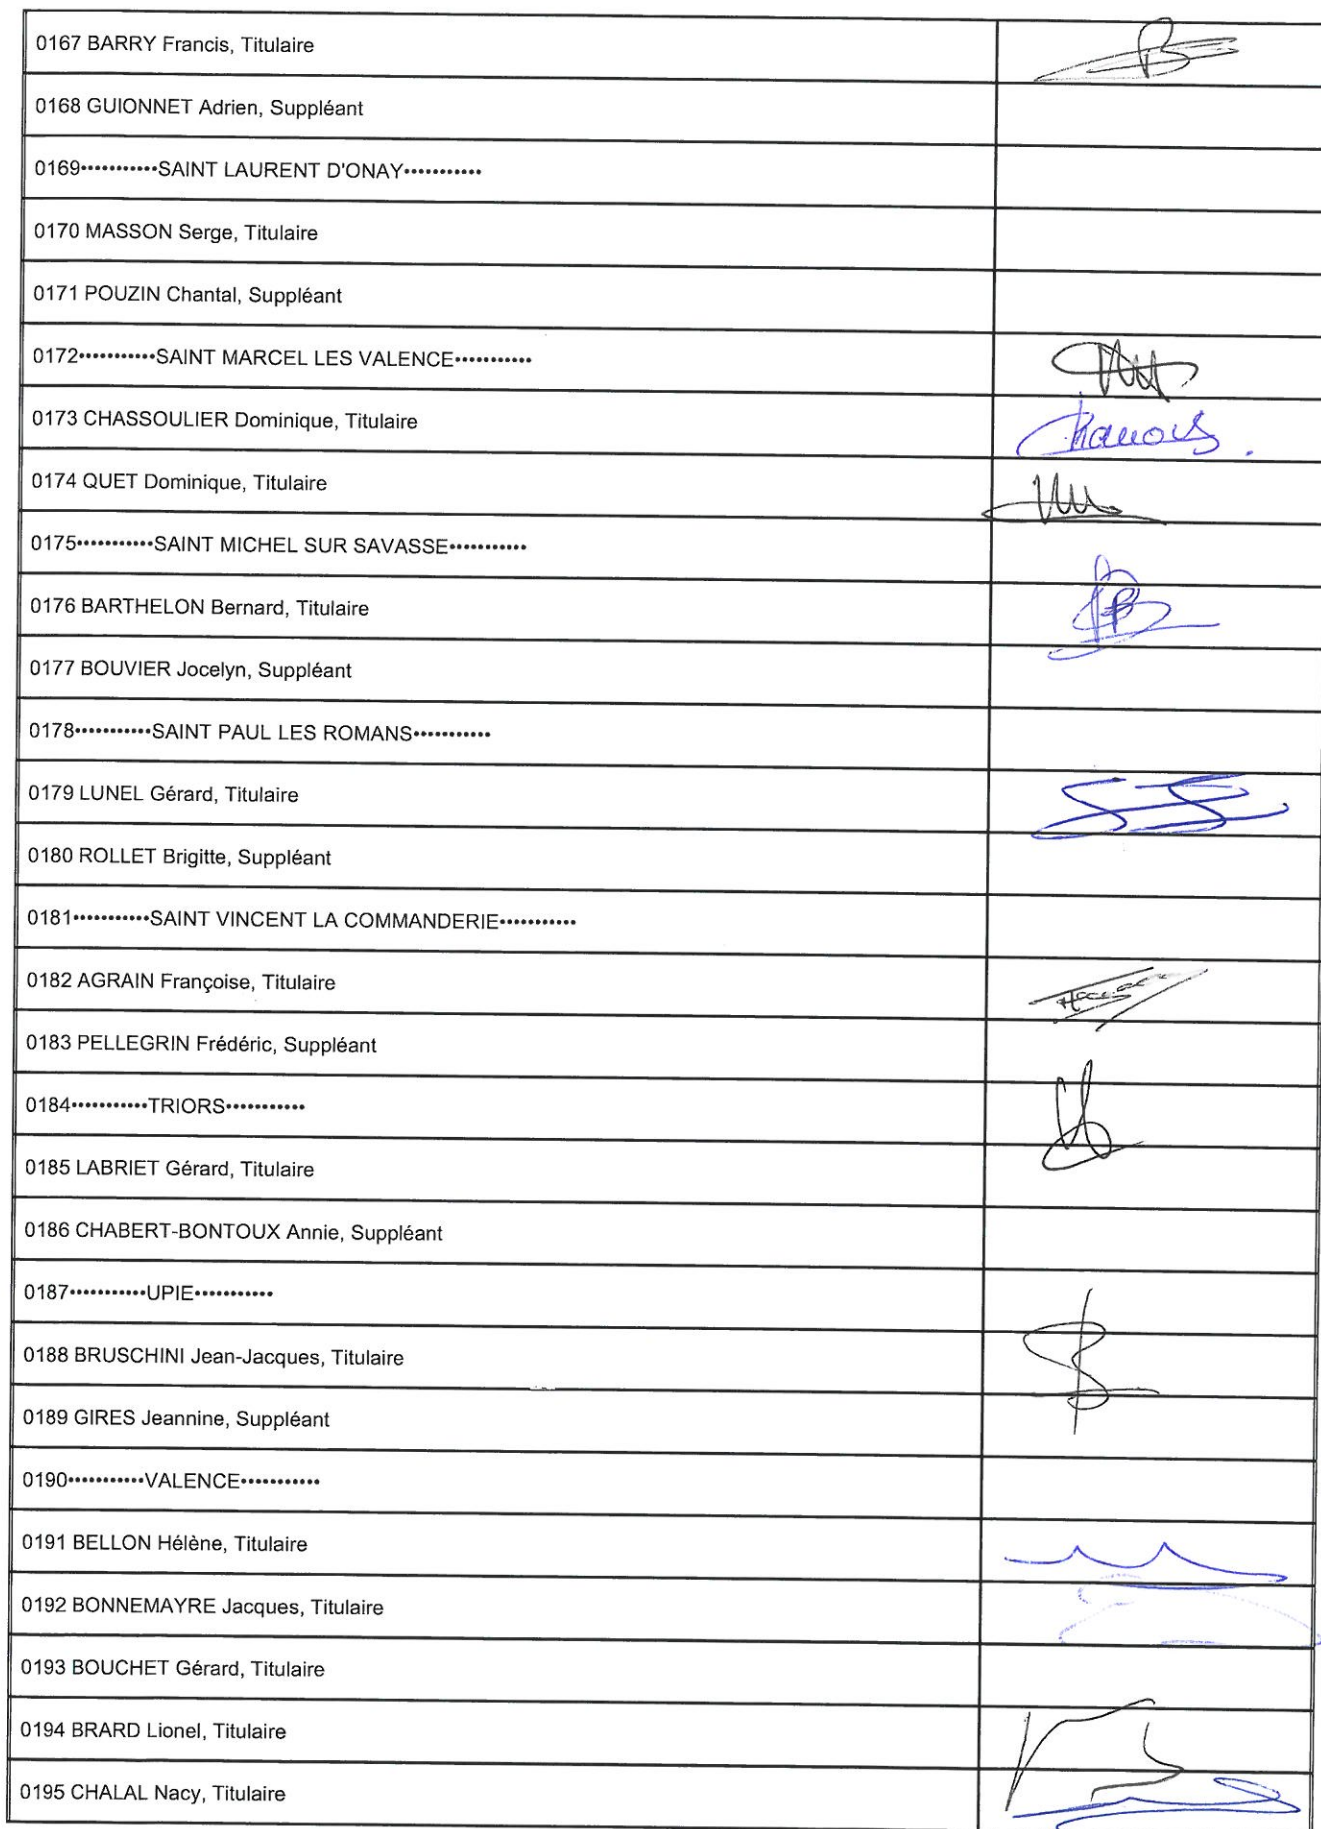 0167 BARRY Francis, Titulaire
0168 GUIONNET Adrien, Suppléant
0169•••••••••••SAINT LAURENT D'ONAY•••••••••••
0170 MASSON Serge, Titulaire
0171 POUZIN Chantal, Suppléant
0172•••••••••••SAINT MARCEL LES VALENCE•••••••••••
0173 CHASSOULIER Dominique, Titulaire
0174 QUET Dominique, Titulaire
0175•••••••••••SAINT MICHEL SUR SAVASSE•••••••••••
0176 BARTHELON Bernard, Titulaire
0177 BOUVIER Jocelyn, Suppléant
0178•••••••••••SAINT PAUL LES ROMANS•••••••••••
0179 LUNEL Gérard, Titulaire
0180 ROLLET Brigitte, Suppléant
0181•••••••••••SAINT VINCENT LA COMMANDERIE•••••••••••
0182 AGRAIN Françoise, Titulaire
0183 PELLEGRIN Frédéric, Suppléant
0184•••••••••••TRIORS•••••••••••
0185 LABRIET Gérard, Titulaire
0186 CHABERT-BONTOUX Annie, Suppléant
0187•••••••••••UPIE•••••••••••
0188 BRUSCHINI Jean-Jacques, Titulaire
0189 GIRES Jeannine, Suppléant
0190•••••••••••VALENCE•••••••••••
0191 BELLON Hélène, Titulaire
0192 BONNEMAYRE Jacques, Titulaire
0193 BOUCHET Gérard, Titulaire
0194 BRARD Lionel, Titulaire
0195 CHALAL Nacy, Titulaire